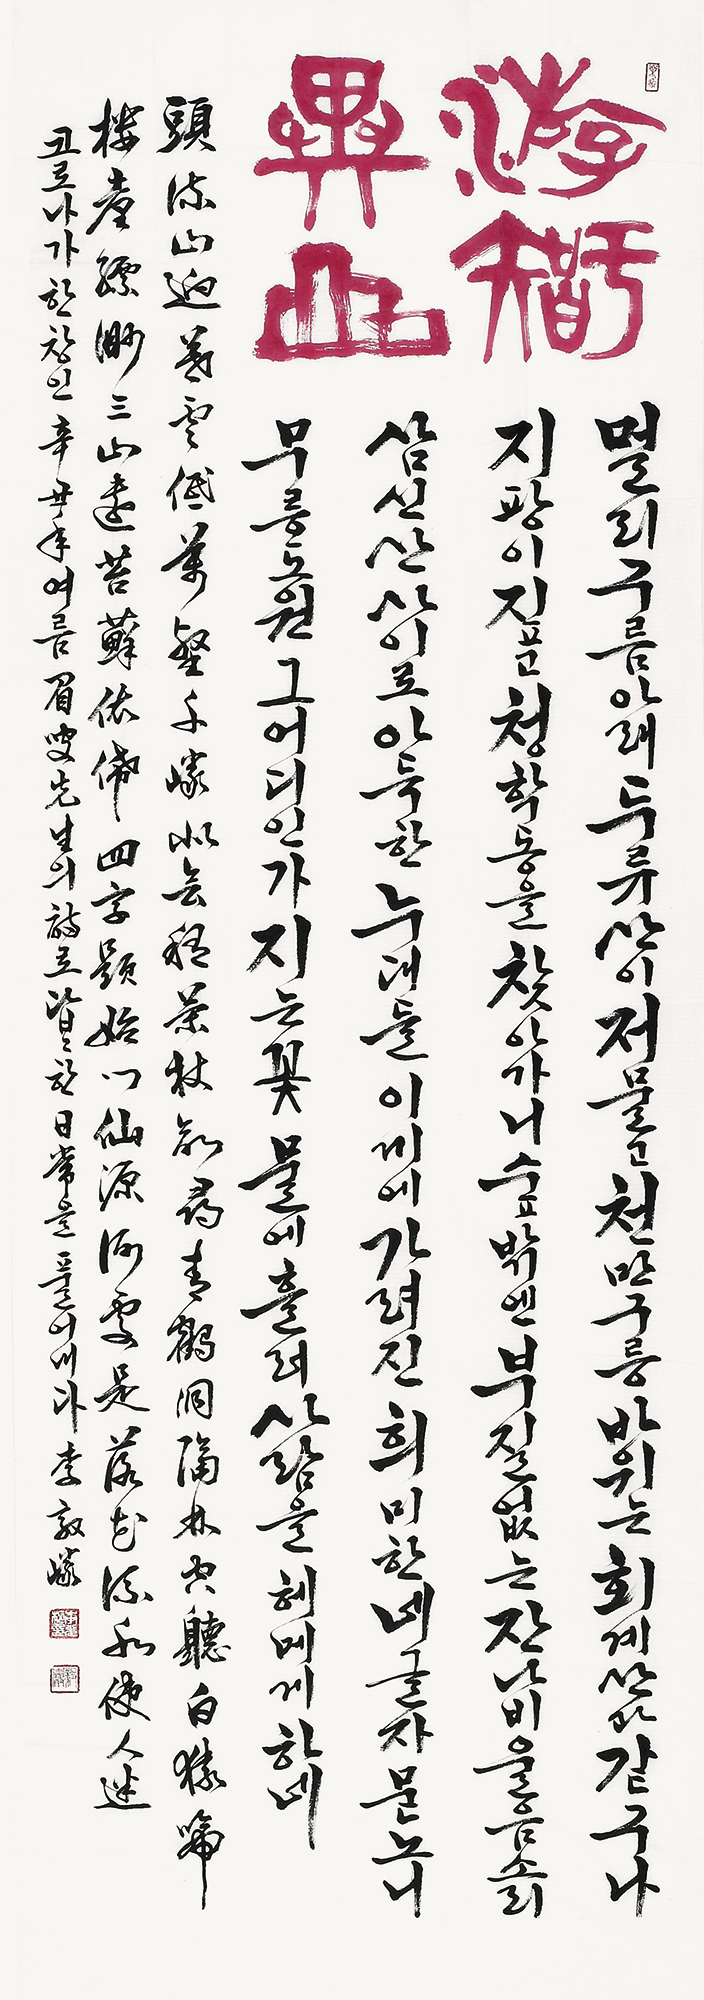 游智
異山
멀리구름아래두류산이저물고천만구릉바위는회계산과같구나
지팡이짚고청학동을찾아가니숲밖엔부질없는잔나비울음소리
삼신산사이로아득한누대들이끼에가려진희미한네글자묻노니
무릉도원그어디인가지는꽃물에흘러사람을헤메게하네
頭流山逈暮雲低萬壑千巖似會稽策杖欲尋青鶴洞隔林空聽白猿啼
樓臺縹緲三山遠苔蘚依俙四字題始問仙源何處是落花流水使人迷
코로나가한창인辛丑年여름眉叟先生의詩로답답한日常을풀어내다李敦